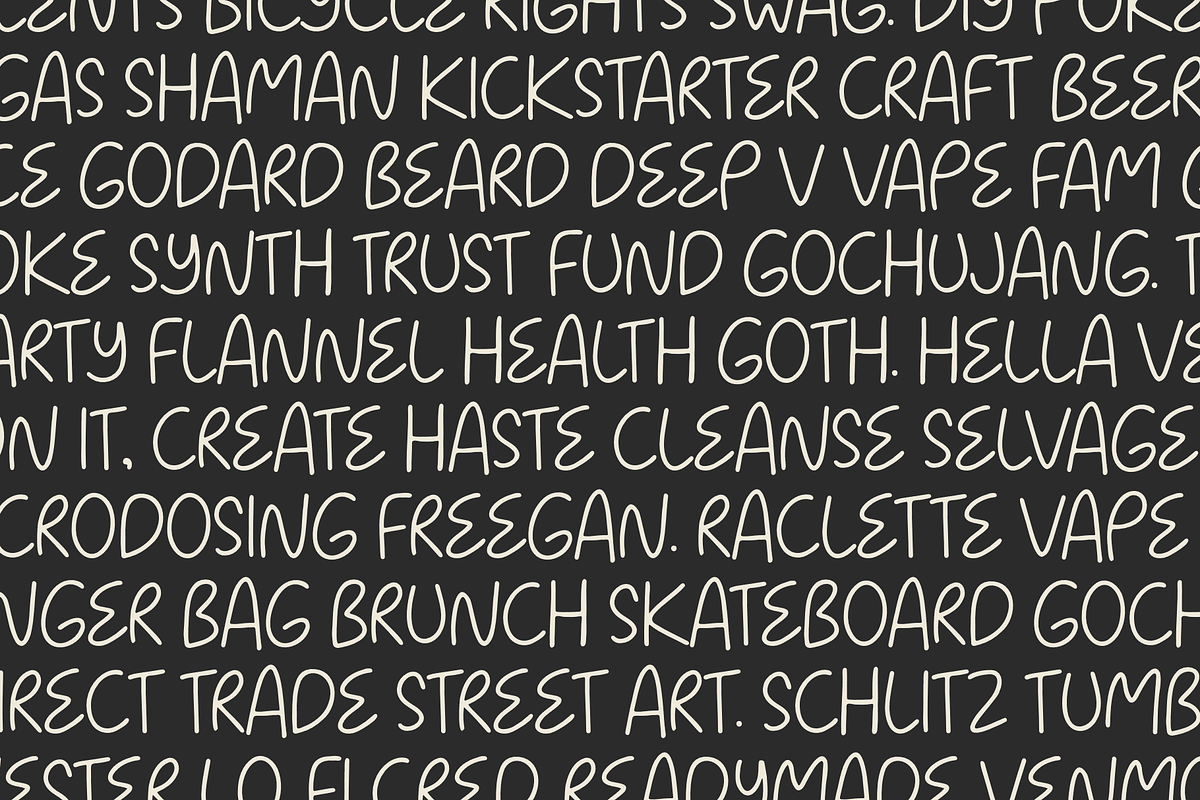 CENTS BICYCLE RIGHTS SWAG. DIY POKE
GAS SHAMAN KICKSTARTER CRAFT BEER
CE GODARD BEARD DEEP V VAPE FAM G
OKE SYNTH TRUST FUND GOCHUJANG. T
ARTY FLANNEL HEALTH GOTH. HELLA VE
ON IT, CREATE HASTE CLEANSE SELVAGE
CRODOSING FREEGAN. RACLETTE VAPE
NGER BAG BRUNCH SKATEBOARD GOCH
IRECT TRADE STREET ART. SCHLITZ TUMB
ESTER LO FI CRED READYMADE VENMO